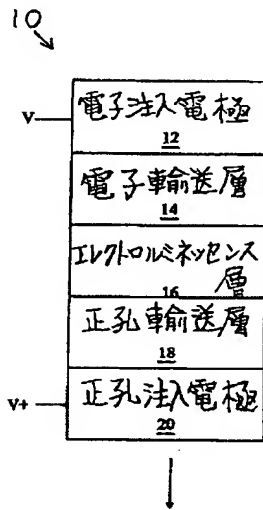 10
V
電子注入電極
12
電子輸送層
14
エレクトロルミネッセンス
層
16
正孔輸送層
18
V+
正孔注入電極
20